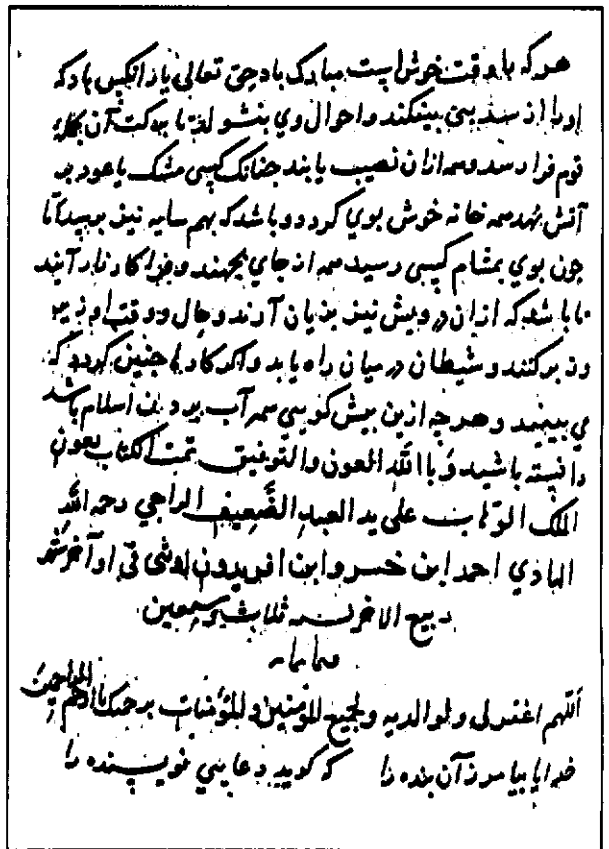 هر که با وقت خوش است مبارک باد حق تعالی یار انکس باد که
او را از سند بینکند و احوال وی بنشولد تا برکت آن بکار
قوم فرا رسد و همه ازان نصیب یابند جنانک کسی مشک یا عود بر
آتش نهد همه خانه خوش بوی کردد و باشد که بهم سایه نیز برسد اما
جون بوی بمشام کسی رسید همه از جای بجهند و کارزار آیند
تا باشد که ازان درویش نیز بزیان آرند و حال و وقت او زیر
و زبر کنند و شیطان در میان راه یابد و اکر کار جنین کردد که
می بینید و هر جه ازین بیش کویی همه آب بردن اسلام باشد
دانسته باشید و بالله العون والتوفیق تمت الکتاب بعون
الملک الوهاب علی ید العبد الضعیف الراجی رحمة الله
الهادی احمد ابن خسرو ابن افریدون فی اواخر شهر
ربیع الاخر سنه ثلاث وسبعین
اللهم اغفر لی ولوالدیه ولجمیع المؤمنین والمؤمنات برحمتک یا ارحم الراحمین
خدایا بیامرز آن بنده را که کوید دعایی نویسنده را